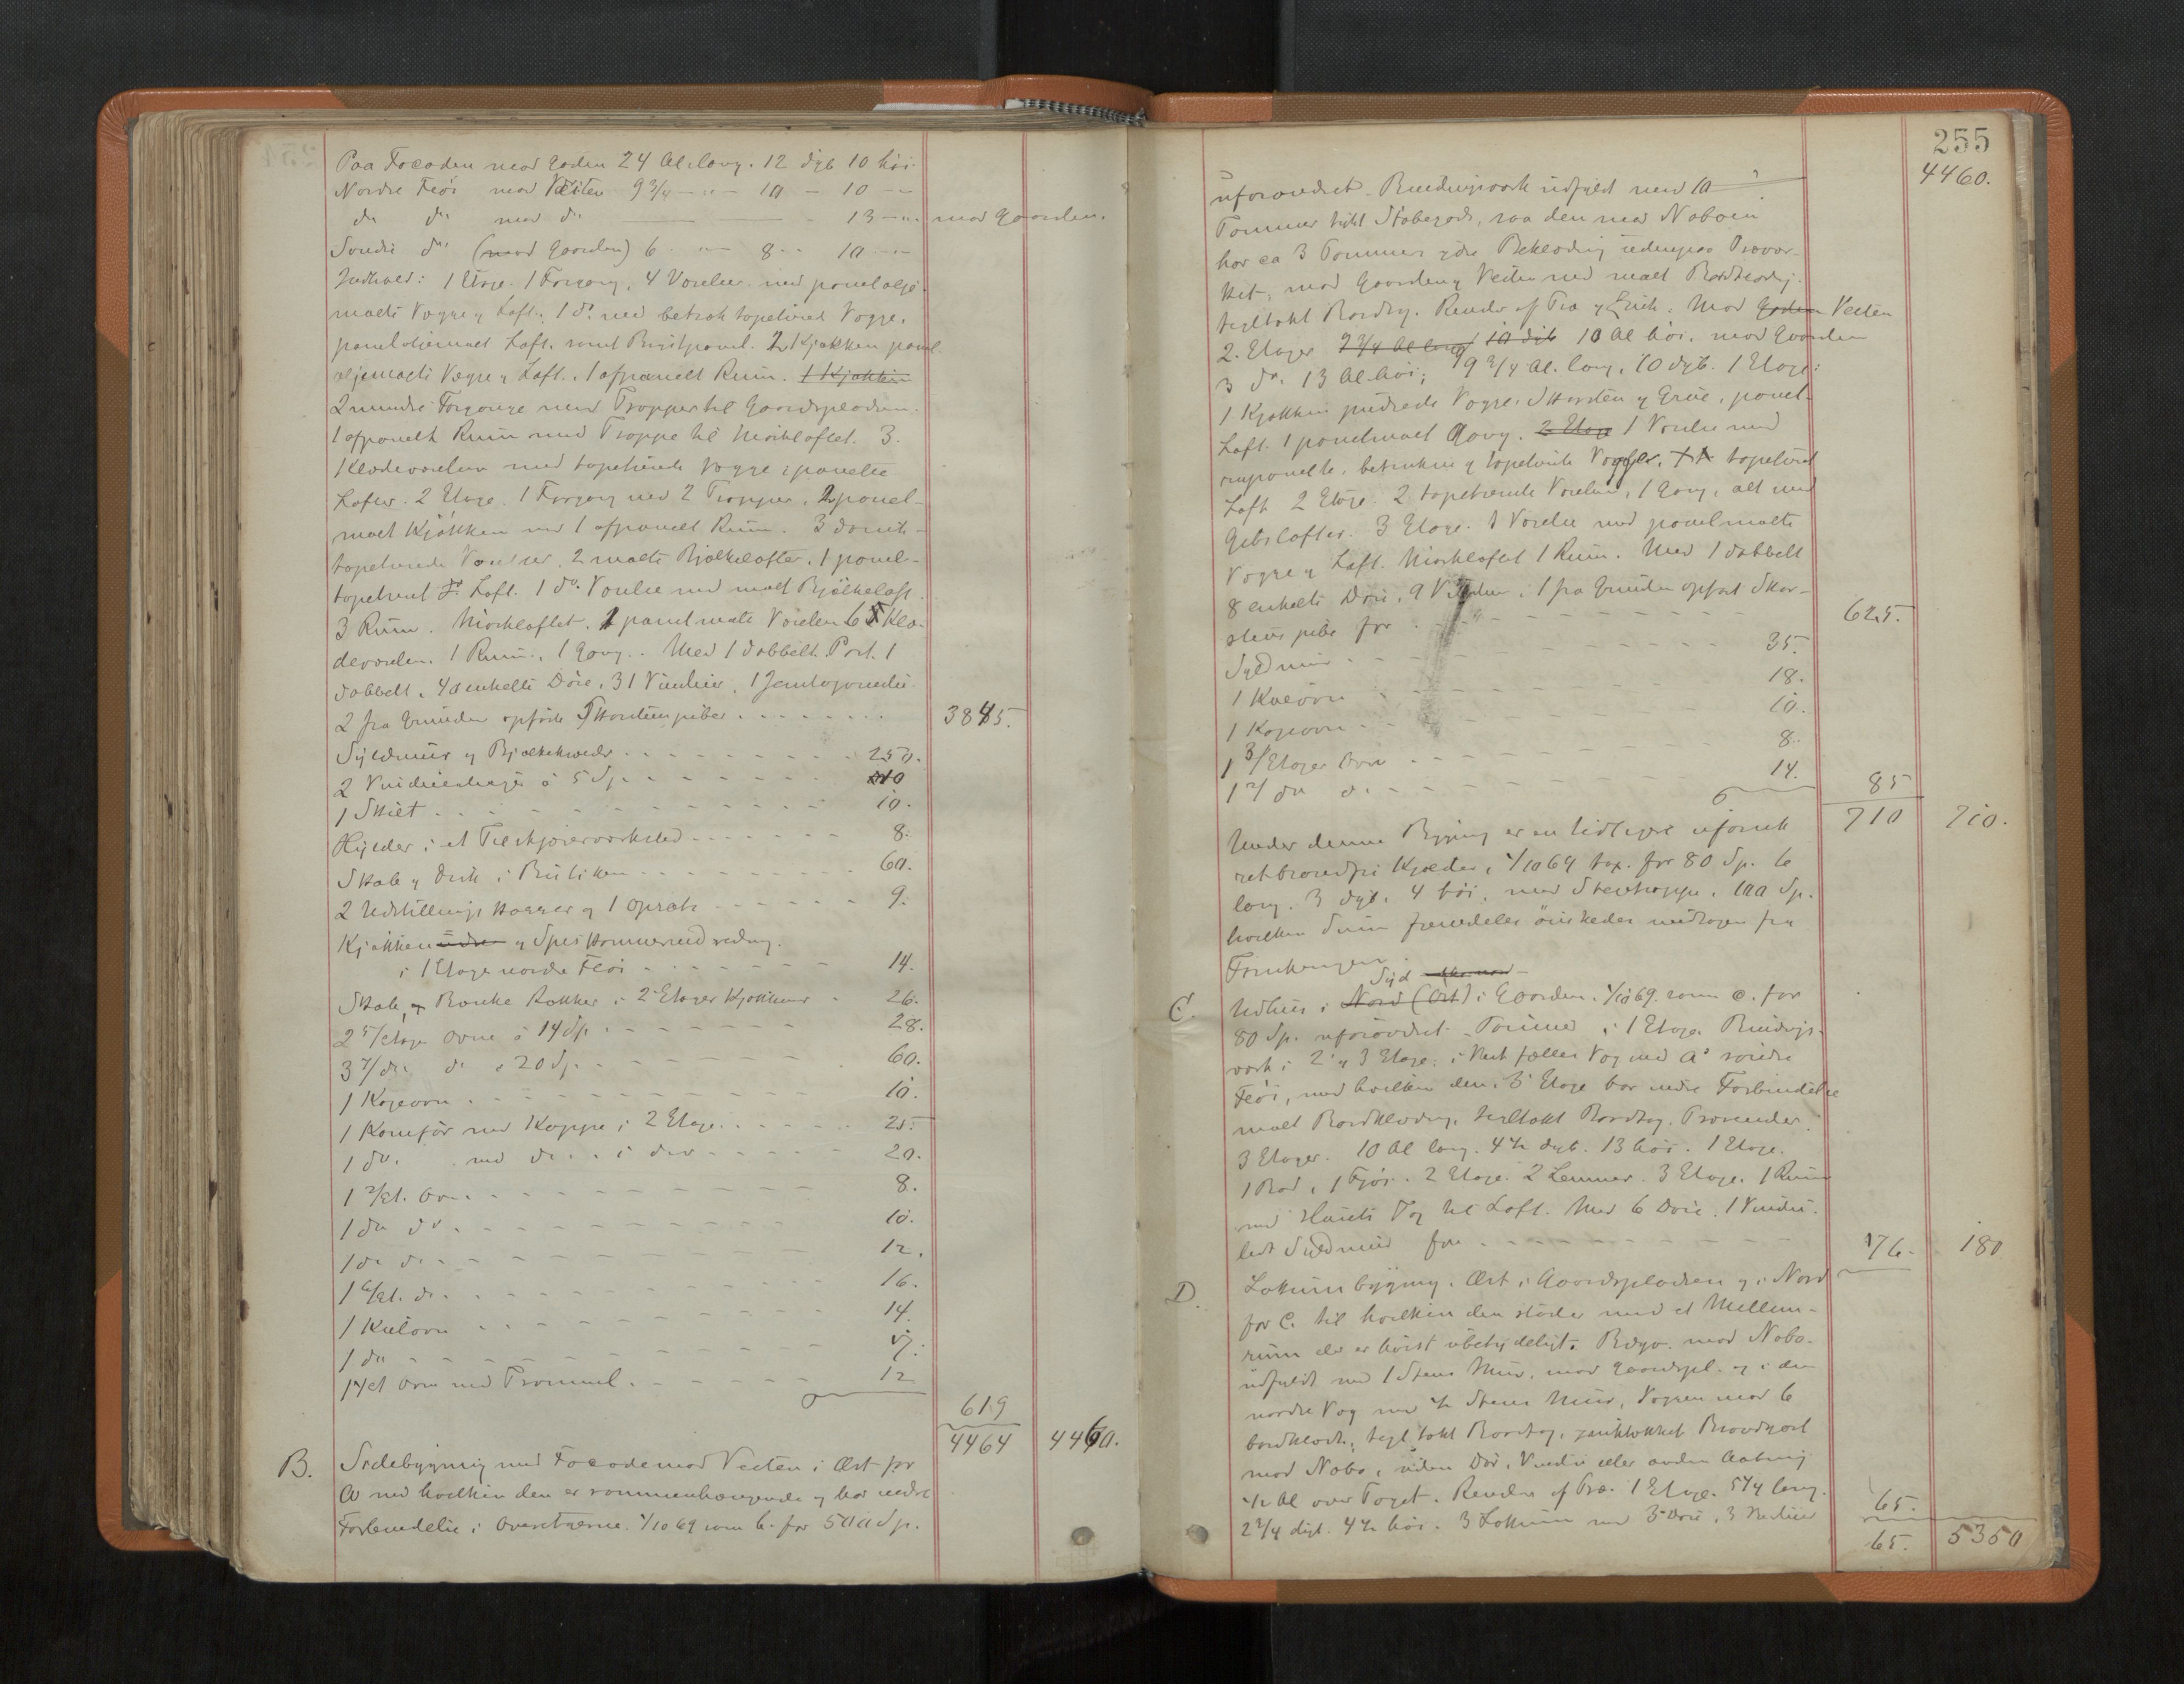 Paa Facaden mod Gaden 24 Al. lang. 12 dyb 10 høi.
Nordre Fløi mod Vesten 9 3/4 - " - 10 - 10 - -
do do mod do 13 - " - mod Gaarden.
Søndre do (mod Gaarden) 6 " 8 " 10 - "
Indhold: 1 Etage. 1 Forgang, 4 Værelser med panel olje-
malte Vægge og Loft. 1 do med betrak tapetseret Vægge,
panel oljemalet Loft, samt Brystpanel. 2 Kjøkken panel
oljemalte Vægge og Loft. 1 afpanelt Rum. 1 Kjøkken
2 mindre Forgange med Trapper til Gaardspladsen.
1 afpanelt Rum med Trappe til Mørkloftet. 3.
1 Klædeværelser med tapetserede Vægge i panelte
Lofter. 2 Etage. 1 Forgang med 2 Trapper. 2 panel-
malt Kjøkken med 1 afpanelt Rum. 3
tapetserede Værelser, 2 malte Bjælkelofter. 1 panel-
tapetseret do Loft. 1 do Værelse med malt Bjælkeloft.
3 Rum. Mørkloftet. 1 panelmalte Værelse 6 Klæ-
deværelser. 1 Rum. 1 Gang. Med 1 dobbelt Port. 1
dobbelt, 40 enkelte Døre, 31 Vinduer,
2 fra Grunden opførte Skorsteenspiber . . . . 3845.
Syldmuur og Bjælkekjælder . . . 250.
2 Vinduesslage á 5 Sp. . . . 10
1 Skilt . . . 10.
Hylder i et Tilskjærerværksted . . . 8.
Skabe og Disk i Butiken . . . 60.
2 Udstillings Kasser og 1 Opsats . . . 9.
Kjøkken og Spiskammerindredning
i 1 Etage nordre Fløi . . . 14.
Skabe, Bænke Rækker i 2 Etages Kjøkkener . 26.
2 5/etage Ovne á 14 Sp. . . . 28.
3 7/do do á 20 Sp. . . . 60.
1 Kogeovn . . . 10.
1 Komfur med Kappe i 2 Etage . . . 25.
1 do med do i do . . . 20.
1 2/et. Ovn . . . 8.
1 do do . . . 10.
1 do do . . . 12.
1 6/et. do . . . 16.
1 Kulovn . . . 14.
1 do . . .
1 4/et Ovn med Trommel . . . 12
619
4464 4460.
B. Sidebygning med Facade mod Vesten i Øst for
A med hvilken den er sammenhængende og har indre
Forbindelse i Overetagerne. 1/10 69 som b. for 500 Sp.
255
4460.
uforandret. Bindingsværk udfyldt med 10
Tommer tykt Støbegods, saa den mod Naboen
har ca 3 Tommer ydre Beklædning udenpaa Trævær-
ket, mod Gaarden og Vesten med malt Bordklædn.
tegltakt Bordtag. Render af Træ og Zink. Mod Gaden Vesten
2. Etager 9 3/4 Al lang 10 dyb 10 Al høi, mod Gaarden
3 do. 13 Al høi; 9 3/4 Al. lang, 10 dyb. 1 Etage:
1 Kjøkken pudsede Vægge, Skorsten og Grue, panel-
Loft. 1 panelmalt Gang. 2 Etage 1 Værelse med
rupanelte, betrukne og tapetserte Vægge, tapetseret
Loft 2 Etage. 2 tapetserede Værelser, 1 Gang, alt med
Gibslofter. 3 Etage. 1 Værelse med panelmalte
Vægge og Loft. Mørkloftet 1 Rum. Med 1 dobbelt
8 enkelte Døre, 9 Vinduer, 1 fra Grunden opført Skor-
stenspibe for . . . 625.
Syldmur . . . 35.
1 Kulovn . . . 18.
1 Kogeovn . . . 10.
1 3/Etages Ovn . . . 8.
1 2/ do do . . . 14. 85
710 710.
Under denne Bygning er en tidligere uforsik-
ret brandfri Kjælder, 1/10 69 tax. for 80 Sp. 6
lang. 3 dyb. 4 høi, med Stentrappe. 100 Sp.
hvilken Sum fremdeles ønskedes undtagen fra
Forsikringen.
C. Udhus i Nord (Øst) Syd i Gaarden. 1/10 69. som c. for
80 Sp. uforandret. Tømmer i 1 Etage Bindings-
værk i 2 og 3 Etage; i Vest fælles Væg med A's søndre
Fløi, med hvilken den i 3 Etage har indre Forbindelse
malt Bordklædng, tegltakt Bordtag. Trærender.
3 Etager. 10 Al lang. 4 1/2 dyb. 13 høi. 1 Etage.
1 Bod, 1 Fjøs. 2 Etage 2 Lemmer. 3 Etage. 1 Rum
med Husets Tag til Loft. Med 6 Døre. 1 Vindue.
lidt Syldmuur for . . . 176. 180
D. Lokumbygning. Øst i Gaardspladsen og i Nord
for C. til hvilken den støder med et Mellem-
rum der er høist ubetydeligt. Bdgv. mod Nabo-
udfyldt med 1 Stens Mur, mod Gaardspl. og i den
nordre Væg med 1/2 Stens Mur, Væggen mod C
bordklædt, tegltakt Bordtag, zinktækket Brandgavl
mod Nabo, uden Dør, Vindue eller anden Aabning
1/2 Al over Taget. Render af Træ. 1 Etage. 5 1/4 lang.
2 3/4 dyb. 4 1/2 høi. 3 Lokum med 3 Døre, 3 Vinduer 65.
65. 5350